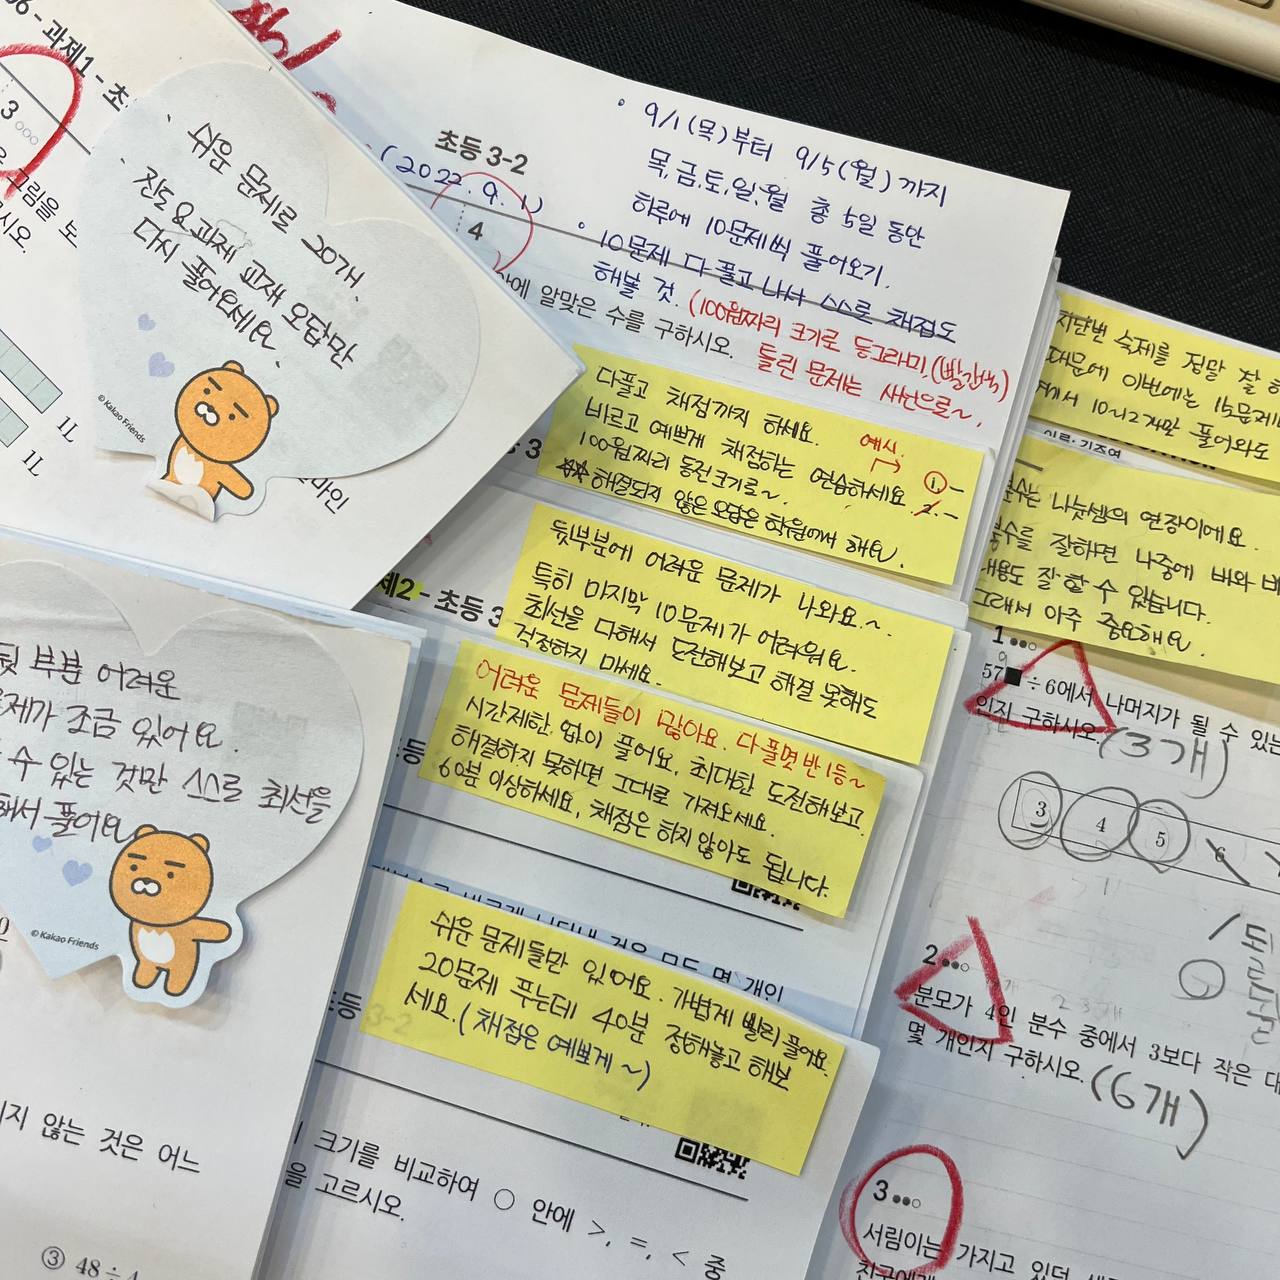 과제1 - 초
3
그림을 보
시오.
1L
1L
쉬운 문제로 20개.
진도 & 과제 교재 오답만
다시 풀어오세요.
© Kakao Friends
마인
뒷 부분 어려운
문제가 조금 있어요.
수 있는 것만 스스로 최선을
해서 풀어요
© Kakao Friends
지 않는 것은 어느
③ 48 ÷ 4
초등 3-2
(2022. 9. 1)
4
안에 알맞은 수를 구하시오.
• 9/1(목)부터 9/5(월)까지
목,금,토,일,월 총 5일 동안
하루에 10문제씩 풀어오기.
• 10문제 다 풀고 나서 스스로 채점도
해볼 것. (100원짜리 크기로 동그라미.(빨간색)
틀린 문제는 사선으로~.
다풀고 채점까지 하세요.
바르고 예쁘게 채점하는 연습하세요.
100원짜리 동전크기로~.
☆☆ 해결되지 않은 오답은 학원에서 해요.
예시.
1.-
2.-
뒷부분에 어려운 문제가 나와요.~.
특히 마지막 10문제가 어려워요.
최선을 다해서 도전해보고 해결 못해도
걱정하지 마세요.
제2 - 초등 3
어려운 문제들이 많아요. 다 풀면 반 1등~
시간제한 없이 풀어요. 최대한 도전해보고
해결하지 못하면 그대로 가져오세요.
60분 이상하세요. 채점은 하지 않아도 됩니다.
쉬운 문제들만 있어요. 가볍게 빨리 풀어요.
20문제 푸는데 40분 정해놓고 해보
세요. (채점은 예쁘게~)
등 3-2
크기를 비교하여 ○ 안에 >, =, < 중
을 고르시오.
지난번 숙제를 정말 잘
때문에 이번에는 15문제
에서 10~12개만 풀어와도
분수는 나눗셈의 연장이에요.
분수를 잘하면 나중에 배와 비
내용도 잘 할 수 있습니다.
그래서 아주 중요해요.
1
57■÷6에서 나머지가 될 수 있는
인지 구하시오.
(3개)
3 4 5 6
2
분모가 4인 분수 중에서 3보다 작은 대
몇 개인지 구하시오.
(6개)
3
서림이는 가지고 있던
친구에게